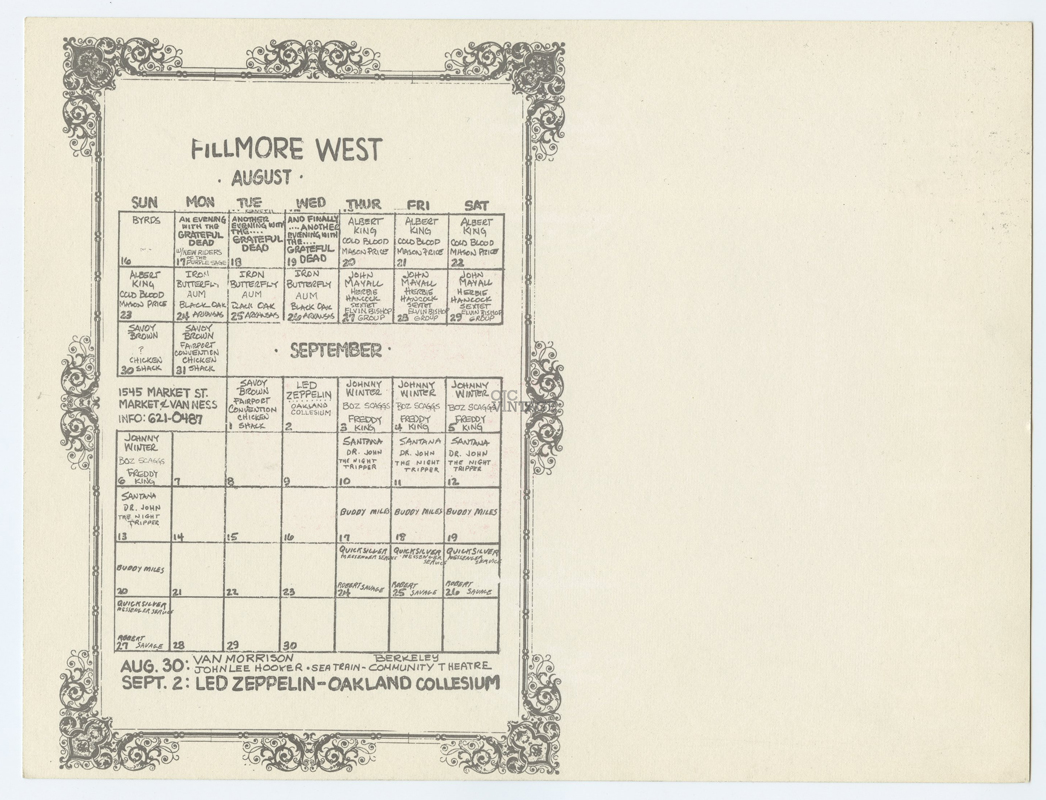 FILLMORE WEST
· AUGUST ·
SUN MON TUE WED THUR FRI SAT
BYRDS
16
AN EVENING
WITH THE
GRATEFUL
DEAD
W/NEW RIDERS
OF THE
PURPLE SAGE
17
ANOTHER
EVENING WITH
THE....
GRATEFUL
DEAD
18
AND FINALLY
....ANOTHER
EVENING WITH
THE....
GRATEFUL
19 DEAD
ALBERT
KING
COLD BLOOD
MASON PRICE
20
ALBERT
KING
COLD BLOOD
MASON PRICE
21
ALBERT
KING
COLD BLOOD
MASON PRICE
22
ALBERT
KING
COLD BLOOD
MASON PRICE
23
IRON
BUTTERFLY
AUM
BLACK OAK
24 ARKANSAS
IRON
BUTTERFLY
AUM
BLACK OAK
25 ARKANSAS
IRON
BUTTERFLY
AUM
BLACK OAK
26 ARKANSAS
JOHN
MAYALL
HERBIE
HANCOCK
SEXTET
ELVIN BISHOP
27 GROUP
JOHN
MAYALL
HERBIE
HANCOCK
SEXTET
ELVIN BISHOP
28 GROUP
JOHN
MAYALL
HERBIE
HANCOCK
SEXTET
ELVIN BISHOP
29 GROUP
SAVOY
BROWN
?
CHICKEN
30 SHACK
SAVOY
BROWN
FAIRPORT
CONVENTION
CHICKEN
31 SHACK
· SEPTEMBER ·
1545 MARKET ST.
MARKET & VAN NESS
INFO: 621-0487
SAVOY
BROWN
FAIRPORT
CONVENTION
CHICKEN
1 SHACK
LED
ZEPPELIN
OAKLAND
COLLESIUM
2
JOHNNY
WINTER
BOZ SCAGGS
FREDDY
3 KING
JOHNNY
WINTER
BOZ SCAGGS
FREDDY
4 KING
JOHNNY
WINTER
BOZ SCAGGS
FREDDY
5 KING
JOHNNY
WINTER
BOZ SCAGGS
FREDDY
6 KING
7
8
9
SANTANA
DR. JOHN
THE NIGHT
TRIPPER
10
SANTANA
DR. JOHN
THE NIGHT
TRIPPER
11
SANTANA
DR. JOHN
THE NIGHT
TRIPPER
12
SANTANA
DR. JOHN
THE NIGHT
TRIPPER
13
14
15
16
BUDDY MILES
17
BUDDY MILES
18
BUDDY MILES
19
BUDDY MILES
20
21
22
23
QUICKSILVER
MESSENGER SERVICE
ROBERT SAVAGE
24
QUICKSILVER
MESSENGER
SERVICE
ROBERT
25 SAVAGE
QUICKSILVER
MESSENGER
SERVICE
ROBERT
26 SAVAGE
QUICKSILVER
MESSENGER SERVICE
ROBERT
27 SAVAGE
28
29
30
AUG. 30: VAN MORRISON BERKELEY
JOHN LEE HOOKER · SEATRAIN - COMMUNITY THEATRE
SEPT. 2: LED ZEPPELIN - OAKLAND COLLESIUM